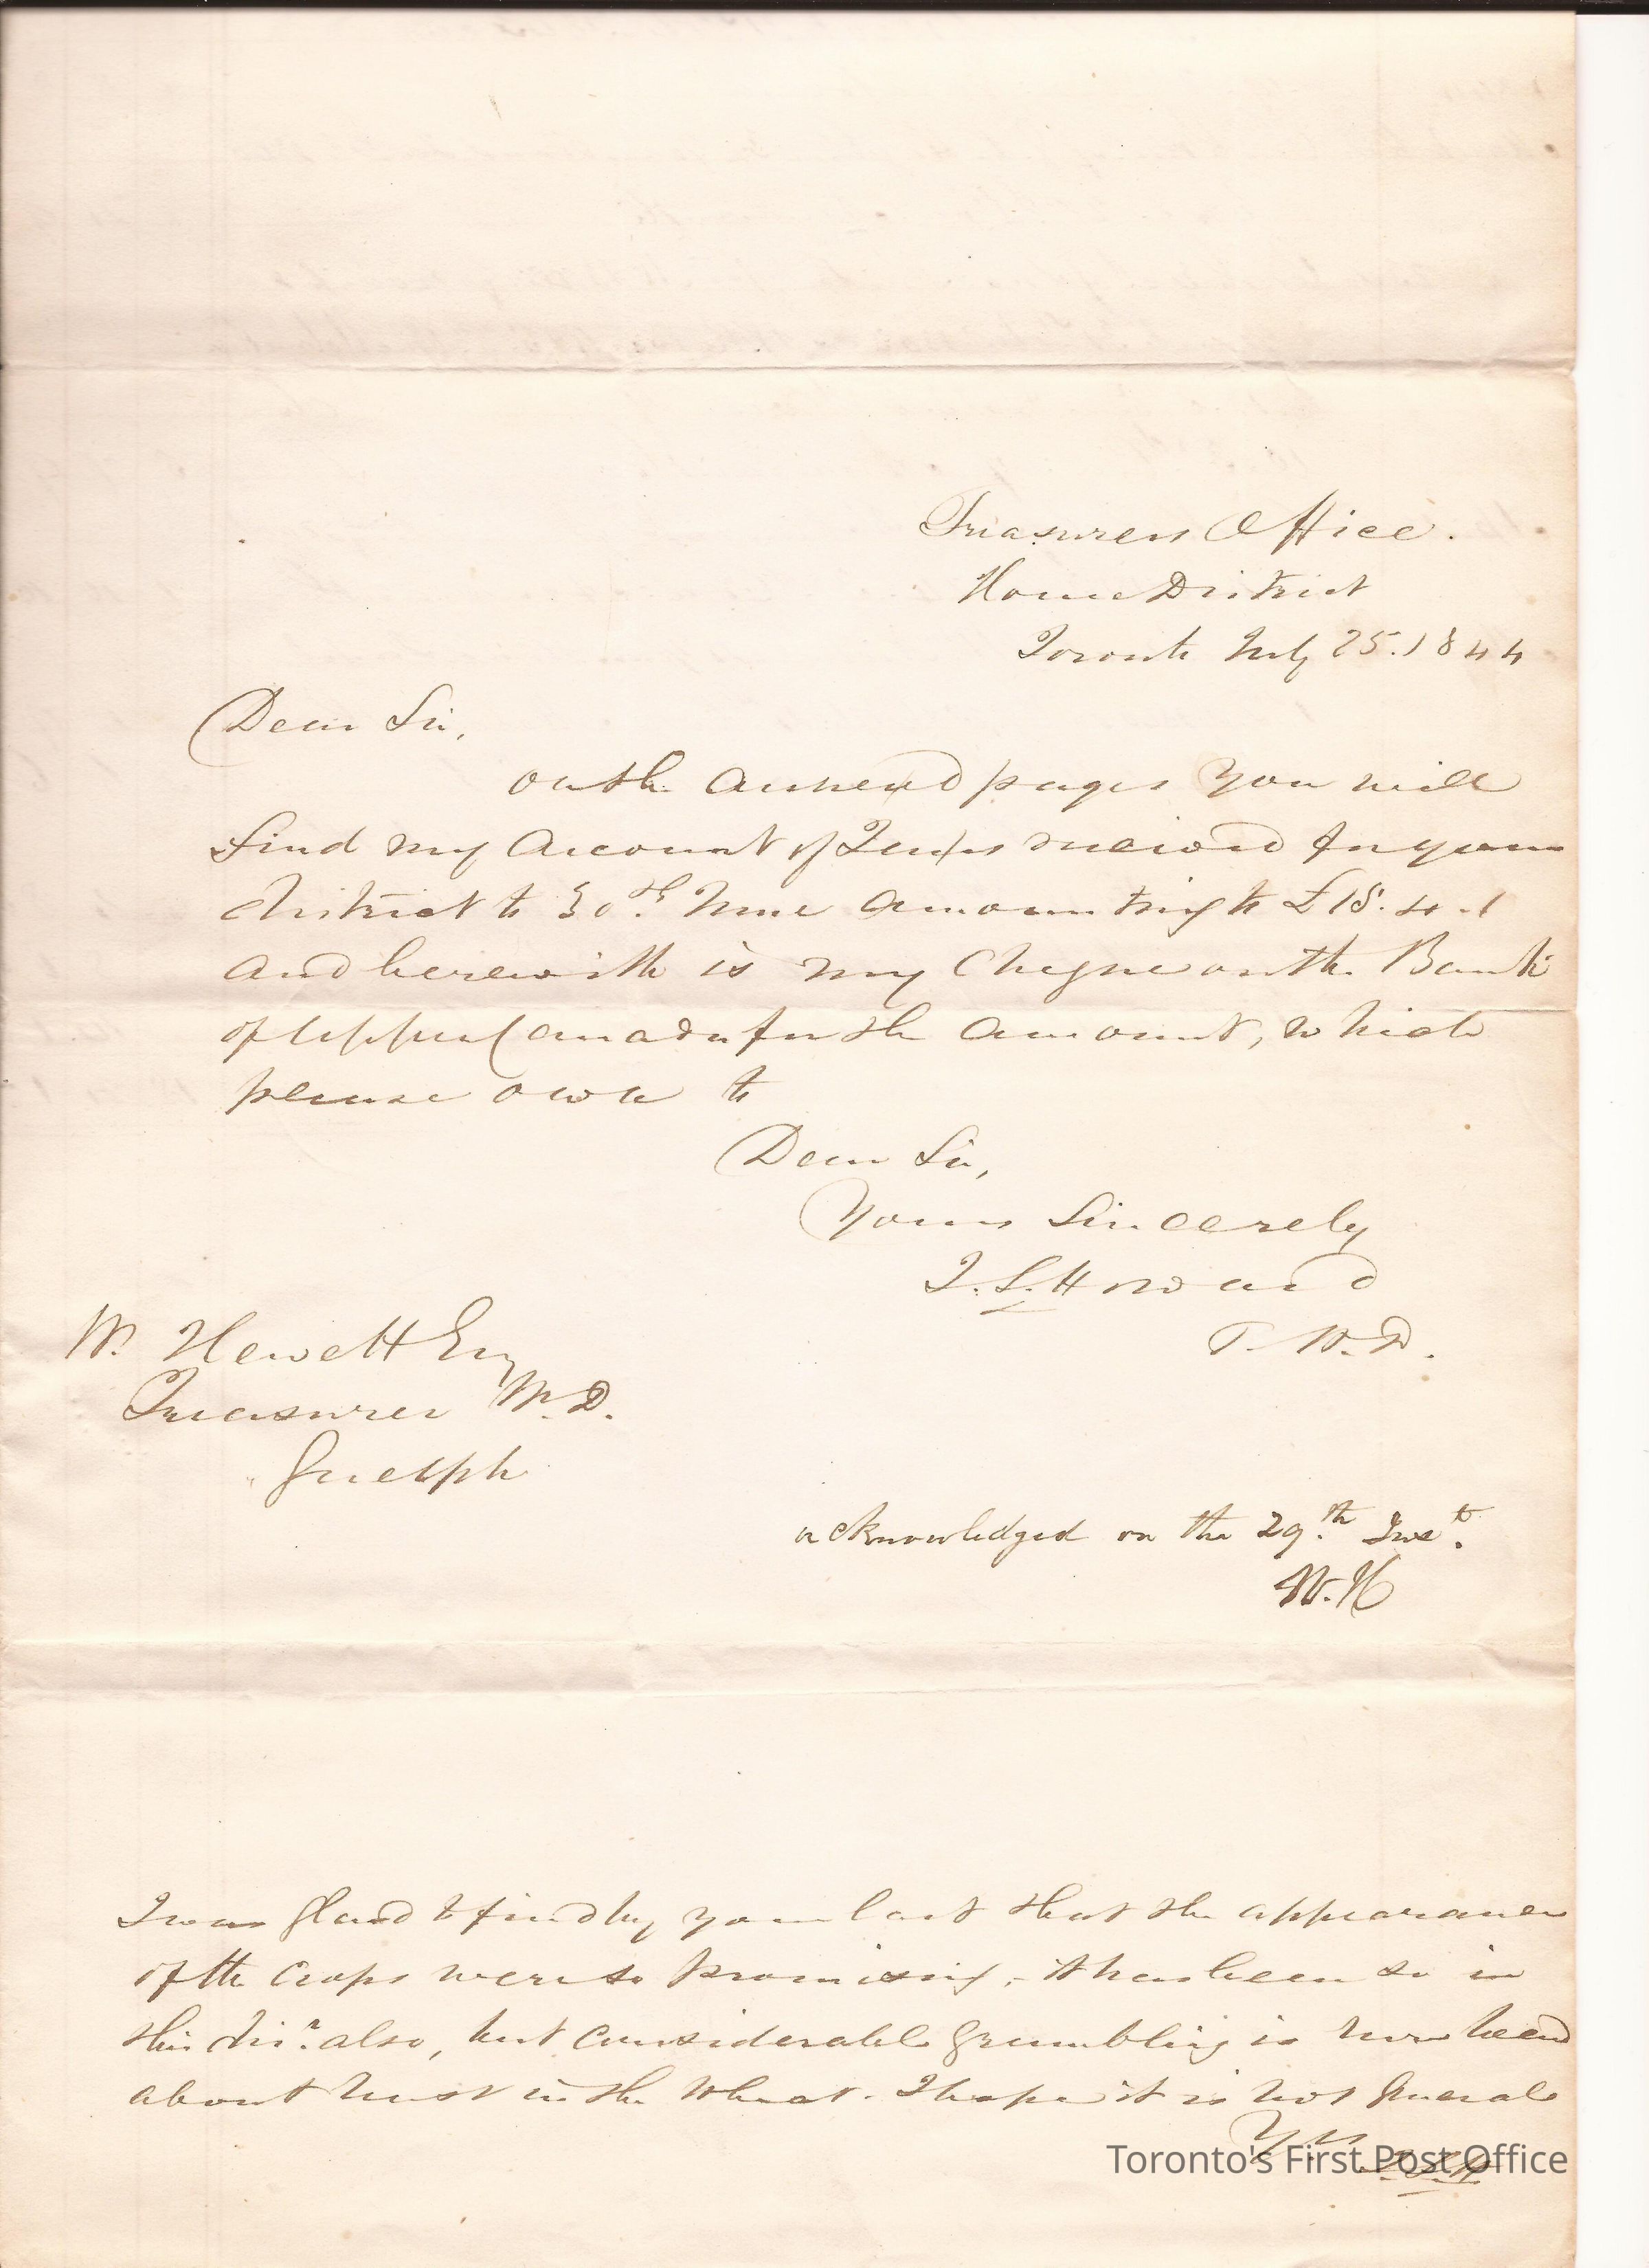 Treasurers Office.
Home District
Toronto July 25. 1844
Dear Sir,
on the annexed pages you will
find my Account of Taxes received for your
district to 30th June amounting to £18. 4. 1
and herewith is my Cheque on the Bank
of Upper Canada for the amount, which
please own to
Dear Sir,
Yours Sincerely
J. S. Howard
T. H. D.
W. Hewett Esq
Treasurer W. D.
Guelph
acknowledged on the 29th Inst.
W. H
I was glad to find by your last that the appearance
of the Crops were so promising, - it has been so in
this Dis. also, but considerable grumbling is now heard
about rust in the Wheat. I hope it is not general
Yrs
J.S.H.
Toronto's First Post Office